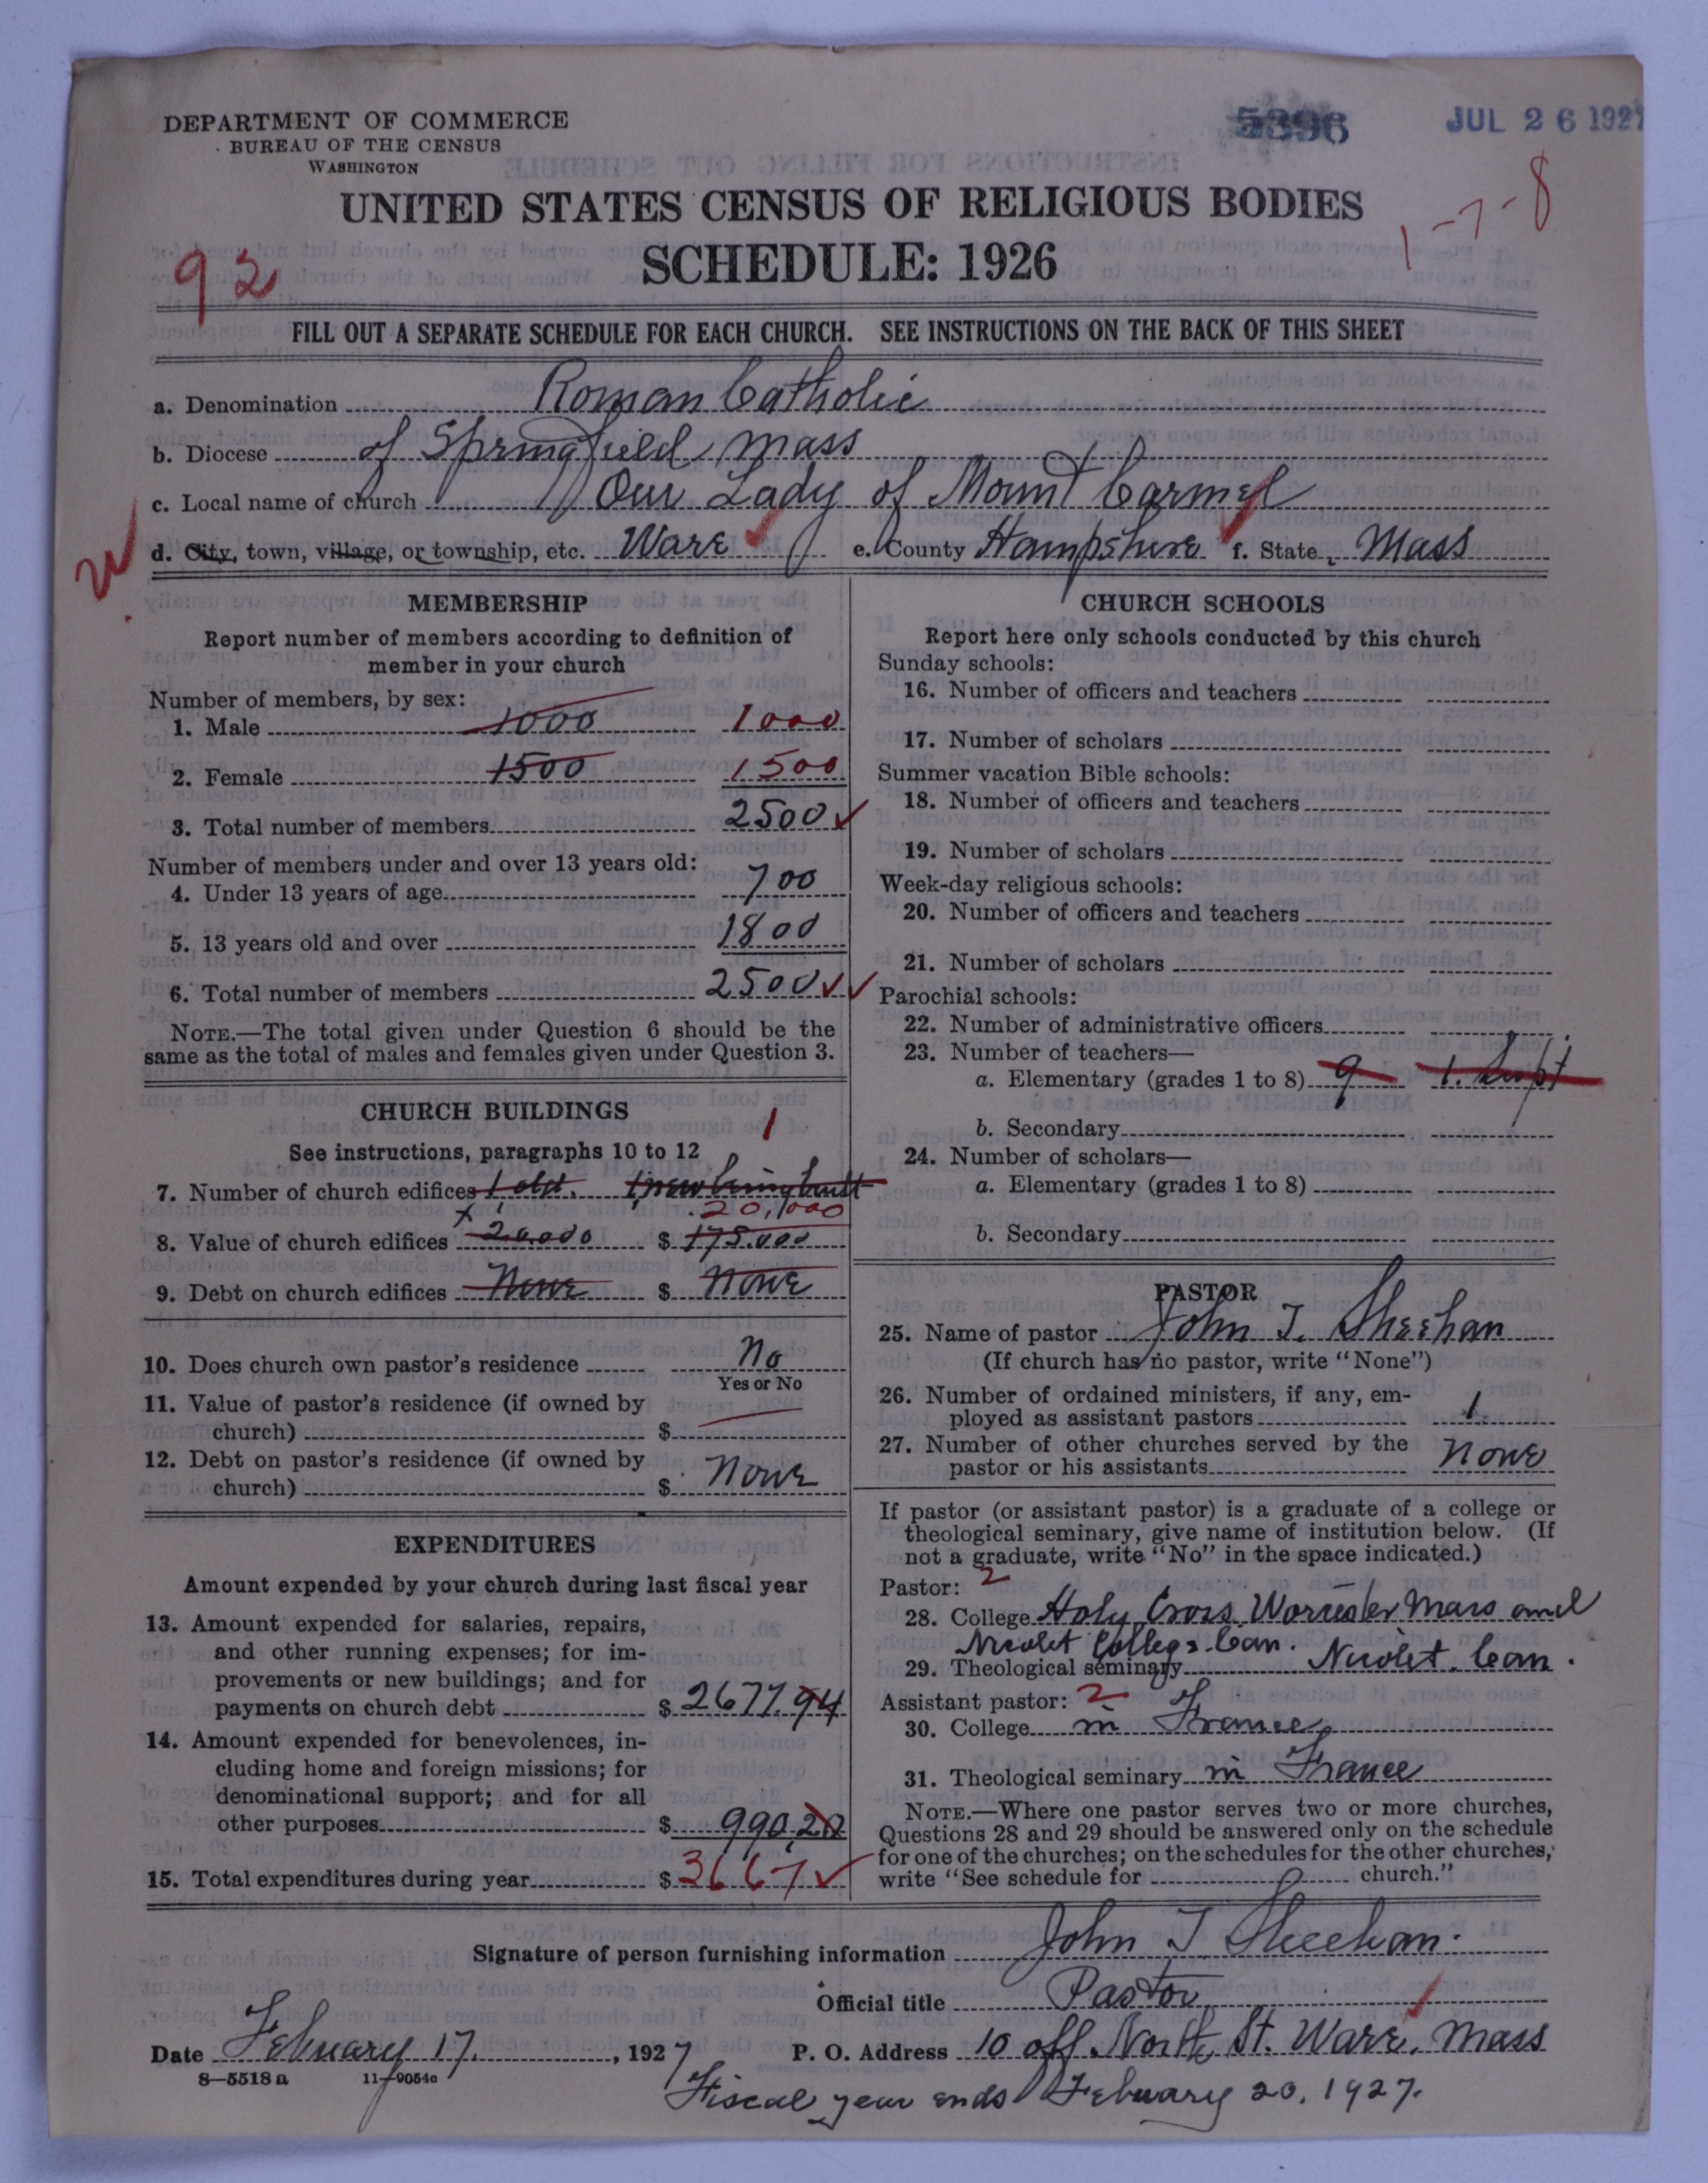 DEPARTMENT OF COMMERCE
BUREAU OF THE CENSUS
WASHINGTON
5396
JUL 26 1927
UNITED STATES CENSUS OF RELIGIOUS BODIES
SCHEDULE: 1926
92
1-7-8
FILL OUT A SEPARATE SCHEDULE FOR EACH CHURCH. SEE INSTRUCTIONS ON THE BACK OF THIS SHEET
a. Denomination Roman Catholic
b. Diocese of Springfield, Mass
c. Local name of church Our Lady of Mount Carmel
d. City, town, village, or township, etc. Ware e. County Hampshire f. State Mass
MEMBERSHIP
Report number of members according to definition of
member in your church
Number of members, by sex:
1. Male 1000 1000
2. Female 1500 1500
3. Total number of members 2500
Number of members under and over 13 years old:
4. Under 13 years of age 700
5. 13 years old and over 1800
6. Total number of members 2500
NOTE.—The total given under Question 6 should be the
same as the total of males and females given under Question 3.
CHURCH BUILDINGS
1
See instructions, paragraphs 10 to 12
7. Number of church edifices 1 old. 1 new being built
20,000
8. Value of church edifices 20.000 $ 175.000
9. Debt on church edifices None $ None
10. Does church own pastor's residence No
Yes or No
11. Value of pastor's residence (if owned by
church) $
12. Debt on pastor's residence (if owned by
church) $ None
EXPENDITURES
Amount expended by your church during last fiscal year
13. Amount expended for salaries, repairs,
and other running expenses; for im-
provements or new buildings; and for
payments on church debt $ 2677.94
14. Amount expended for benevolences, in-
cluding home and foreign missions; for
denominational support; and for all
other purposes $ 990.20
15. Total expenditures during year $ 3667
CHURCH SCHOOLS
Report here only schools conducted by this church
Sunday schools:
16. Number of officers and teachers
17. Number of scholars
Summer vacation Bible schools:
18. Number of officers and teachers
19. Number of scholars
Week-day religious schools:
20. Number of officers and teachers
21. Number of scholars
Parochial schools:
22. Number of administrative officers
23. Number of teachers—
a. Elementary (grades 1 to 8) 9 1. Supt
b. Secondary
24. Number of scholars—
a. Elementary (grades 1 to 8)
b. Secondary
PASTOR
25. Name of pastor John T. Sheehan
(If church has no pastor, write "None")
26. Number of ordained ministers, if any, em-
ployed as assistant pastors 1
27. Number of other churches served by the
pastor or his assistants None
If pastor (or assistant pastor) is a graduate of a college or
theological seminary, give name of institution below. (If
not a graduate, write "No" in the space indicated.)
Pastor: 2
28. College Holy Cross Worcester Mass and
Nicolet College Can.
29. Theological seminary Nicolet. Can.
Assistant pastor: 2
30. College in France
31. Theological seminary in France
NOTE.—Where one pastor serves two or more churches,
Questions 28 and 29 should be answered only on the schedule
for one of the churches; on the schedules for the other churches,
write "See schedule for church."
Signature of person furnishing information John T Sheehan.
Official title Pastor
Date February 17, 1927 P. O. Address 10 off North St. Ware, Mass
8—5518a 11—9054c
Fiscal year ends February 20, 1927.